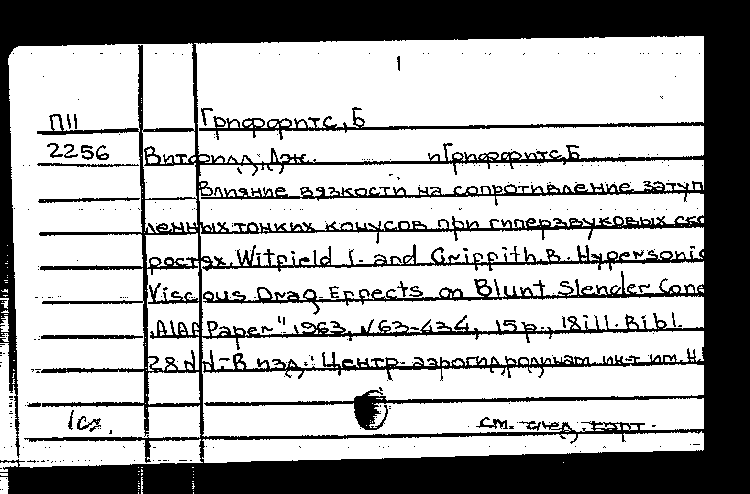 1
П11 Гриффитс, Б
2256 Витфилд, Дж. и Гриффитс, Б
Влияние вязкости на сопротивление затуп
ленных тонких конусов при гиперзвуковых ско
ростях. Witfield J. and Griffith B. Hypersonic
Viscous Drag Effects on Blunt Slender Cone
"AIAA Paper" 1963, №63-434, 15 p., 18 ill. Bibl.
28 №№ - В изд.: Центр. аэрогидродинам. ин-т им. Н.
1сэ. см. след. карт.